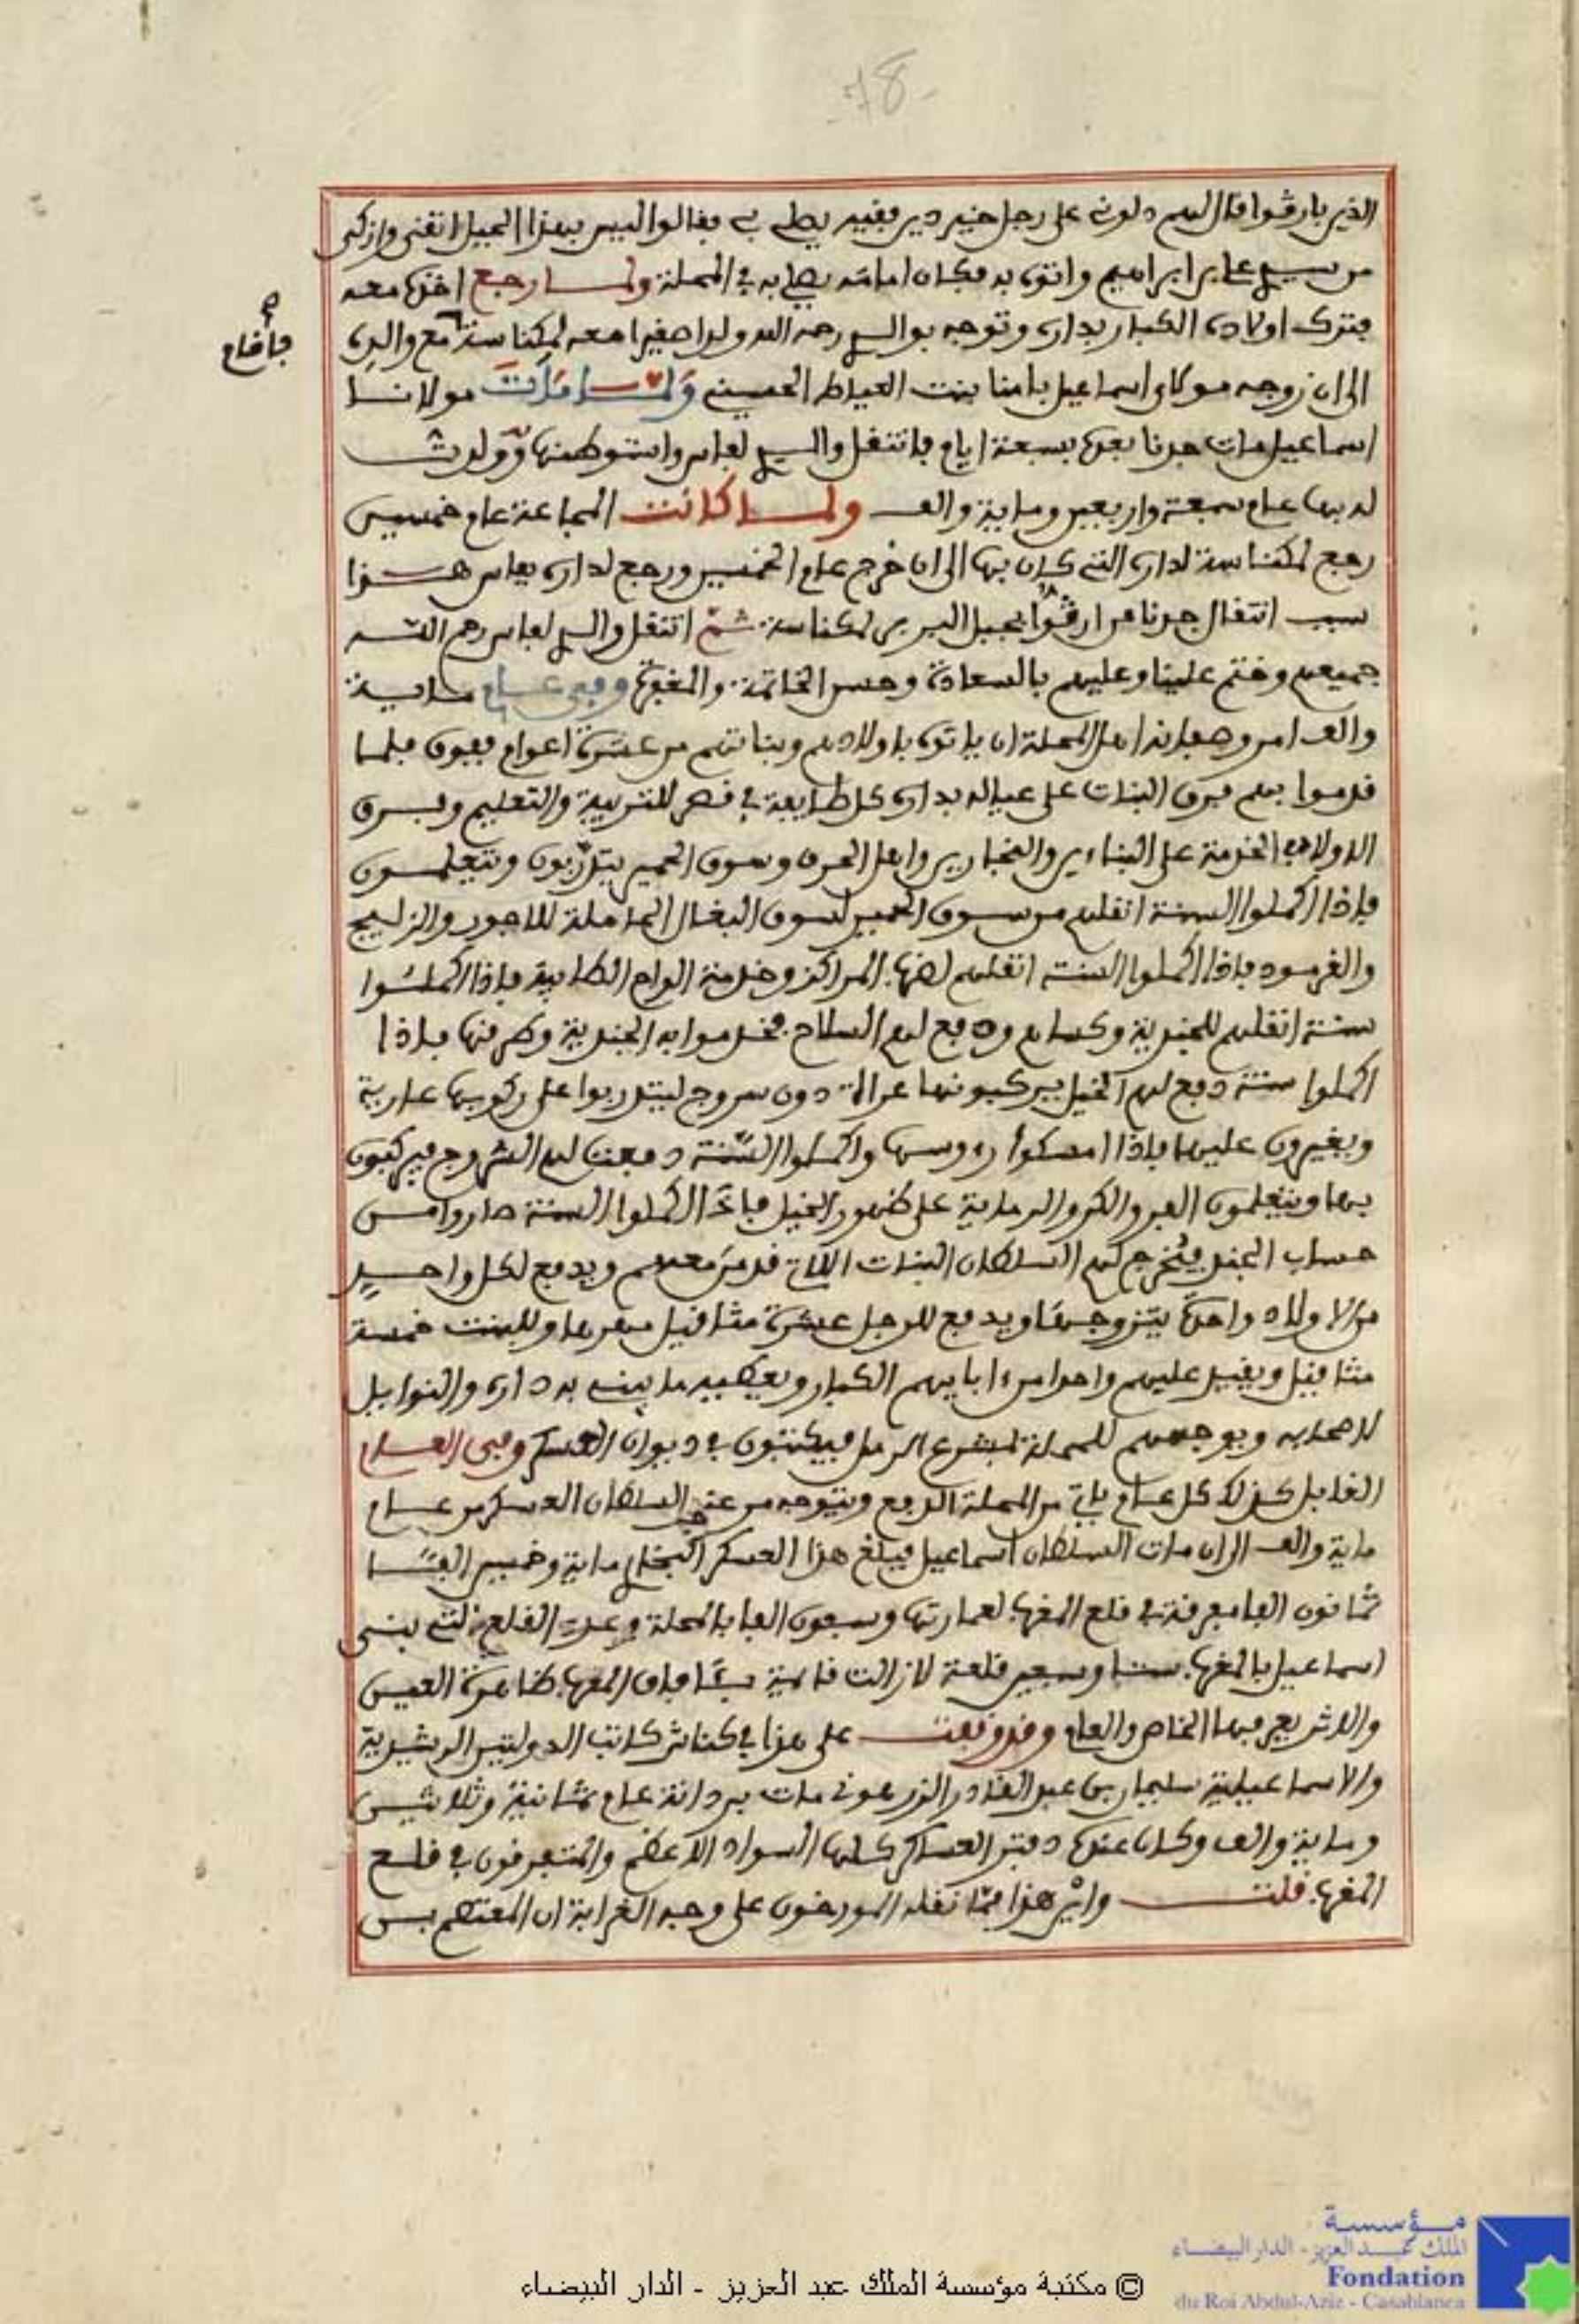 78
الذين بارڨوا فقال لهم دلوني على رجل خير دين فقيه يصلي بي فقالوا ليس بهذا الجبل اتقى وازكى
من سيدي علي بن ابراهيم واتوه به فكان امامه يصلي به في المحلة ولما رجع اخذه معه
فترك اولاده الكبار بداره وتوجه بوالدي رحمه الله ولدا صغيرا معه لمكناسة مع والدي
فاقام
الى ان زوجه مولاي اسماعيل بامنا بنت العياط الحسني ولما مات مولانا
اسماعيل مات جدنا بعده بسبعة ايام فانتقل والدي لفاس واستوطنها وولدت
له بها عام سبعة واربعين وماية والف ولما كانت المجاعة عام خمسين
رجع لمكناسة لداره التي كان بها الى ان خرج عام الخمسين ورجع لداره بفاس هذا
سبب انتقال جدنا من ارڨوا بجبل البربر لمكناسة ثم انتقل والدي لفاس رحم الله
جميعهم وختم علينا وعليهم بالسعادة وحسن الخاتمة والمغفرة وفي عام ماية
والف امر وصفانه اهل المحلة ان ياتوه باولادهم وبناتهم من عشرة اعوام ففوق فلما
قدموا بهم فرق البنات على عياله بداره كل طايفة في قصر للتربية والتعليم وفرق
الاولاد الخدمة على البنائين والنجارين واهل الحرف وسوق الحمير يتدربون ويتعلمون
فاذا اكملوا السنة انقلهم من سوق الحمير لسوق البغال الحاملة للاجور والزليج
والقرمود فاذا اكملوا السنة انقلهم لضرب المراكز وخدمة الواح الطابية فاذا اكملوا
سنة انقلهم للجندية وكساهم ودفع لهم السلاح فخدموا به الجندية وطرقها فاذا
اكملوا سنة دفع لهم الخيل يركبونها عراة دون سروج ليتدربوا على ركوبها عارية
ويغيرون عليها فاذا امسكوا رءوسها واكملوا السنة دفعت لهم السروج فيركبون
بها ويتعلمون الفر والكر والرماية على ظهور الخيل فاذا اكملوا السنة صاروا من
حساب الجند فيخرج لهم السلطان البنات اللاتي قدمن معهم ويدفع لكل واحد
من الاولاد واحدة يتزوجها ويدفع للرجل عشرة مثاقيل مهرها وللبنت خمسة
مثاقيل ويقيل عليهم واحدا من ءابايهم الكبار ويعطيه ما يبني به داره والنوايل
لاصحابه ويوجههم للمحلة بمشرع الرمل فيكتبون في ديوان العسكر وفي العام
القابل كذلك كل عام ياتي من المحلة الدفع ويتوجه من عند السلطان العسكر من عام
ماية والف الى ان مات السلطان اسماعيل فبلغ هذا العسكر البخاري ماية وخمسين الفا
ثمانون الفا مفرقة في قلع المغرب لعمارتها وسبعون الفا بالمحلة وعدة القلع التي بنى
اسماعيل بالمغرب ستا وسبعين قلعة لازالت قايمة بـآفاق المغرب ظاهرة العين
والاثر يعرفها الخاص والعام وقد وقفت على هذا في كناش كاتب الدولتين الرشيدية
والاسماعيلية سليمان بن عبد القادر الزرهوني مات بردانة عام ثمانية وثلاثين
وماية والف وكان عنده دفتر العساكر كلها السواد الاعظم والمتفرقون في قلع
المغرب قلت واين هذا مما نقله المورخون على وجه الغرابة ان المعتصم بن
© مكتبة مؤسسة الملك عبد العزيز - الدار البيضاء
مؤسسة
الملك عبد العزيز - الدار البيضاء
Fondation
du Roi Abdul-Aziz - Casablanca